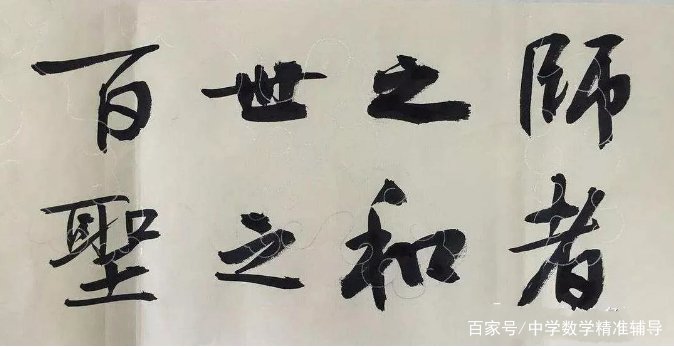 百世之師
聖之和者
百家号/中学数学精准辅导